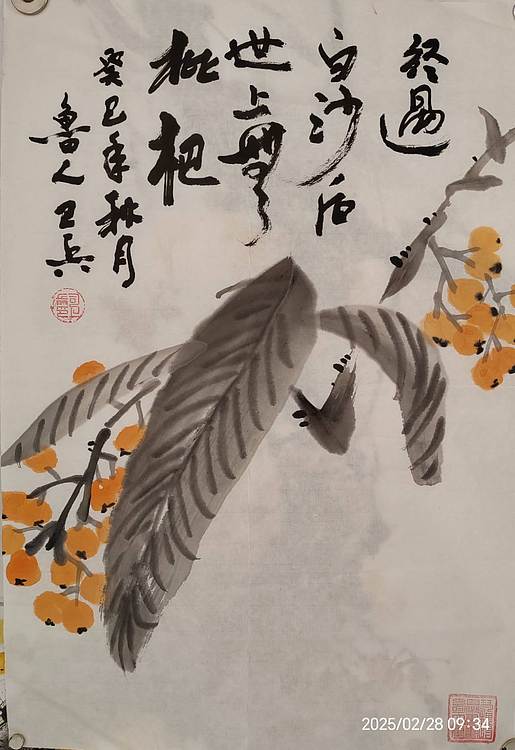 经過
白沙后
世上無
枇杷
癸巳年秋月
魯人卫兵
2025/02/28 09:34